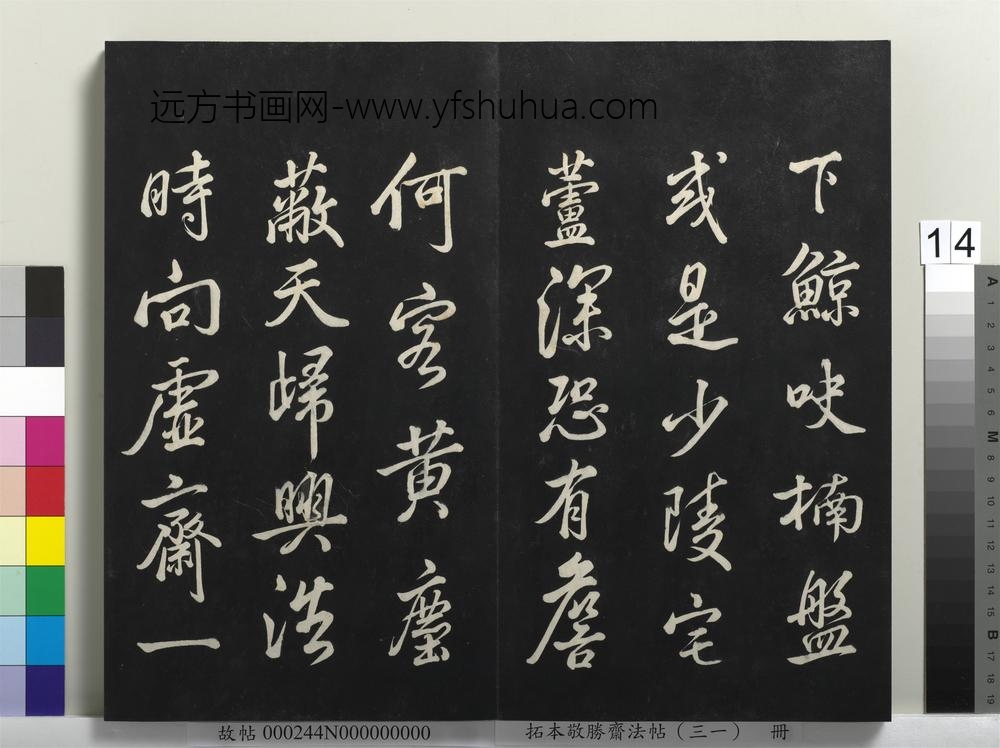 远方书画网-www.yfshuhua.com
下鯨吷楠盤
或是少陵宅
蘆深恐有詹
何客黄塵
蔽天歸興浩
時向虛齋一
14
A 1 2 3 4 5 6 M 8 9 10 11 12 13 14 15 B 17 18 19
故帖 000244N000000000
拓本敬勝齋法帖（三一） 冊